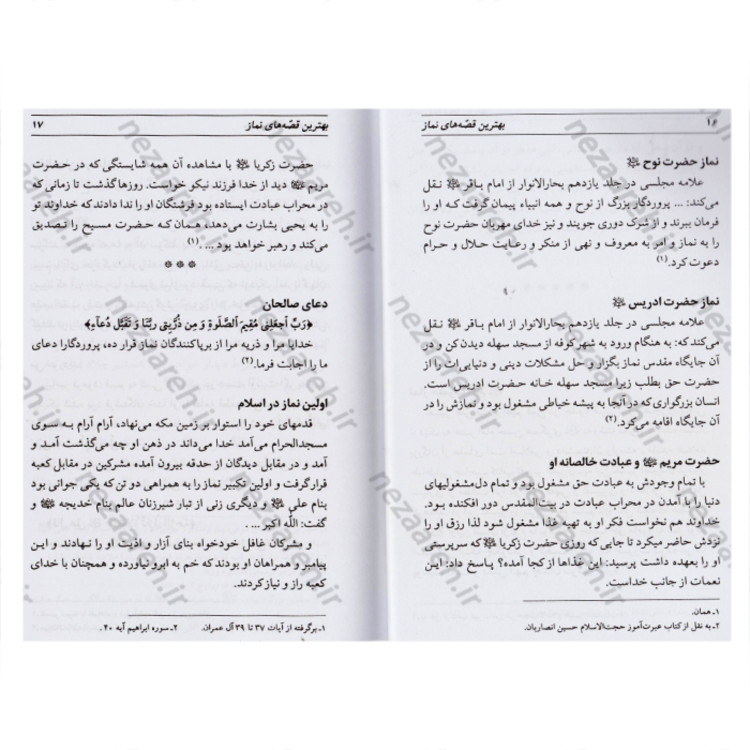 ۱۶ بهترین قصّه‌های نماز
نماز حضرت نوح ﷺ
علامه مجلسی در جلد یازدهم بحارالانوار از امام باقر ﷺ نقل
می‌کند: ... پروردگار بزرگ از نوح و همه انبیاء پیمان گرفت که او را
فرمان ببرند و از شرک دوری جویند و نیز خدای مهربان حضرت نوح
را به نماز و امر به معروف و نهی از منکر و رعایت حلال و حرام
دعوت کرد.(۱)
نماز حضرت ادریس ﷺ
علامه مجلسی در جلد یازدهم بحارالانوار از امام باقر ﷺ نقل
می‌کند که: به هنگام ورود به شهر کوفه از مسجد سهله دیدن کن و در
آن جایگاه مقدس نماز بگزار و حل مشکلات دینی و دنیایی‌ات را از
حضرت حق بطلب زیرا مسجد سهله خانه حضرت ادریس است.
انسان بزرگواری که در آنجا به پیشه خیاطی مشغول بود و نمازش را در
آن جایگاه اقامه می‌کرد.(۲)
حضرت مریم ﷺ و عبادت خالصانه او
با تمام وجودش به عبادت حق مشغول بود و تمام دل‌مشغولیهای
دنیا را با آمدن در محراب عبادت در بیت‌المقدس دور افکنده بود.
خداوند هم نخواست فکر او به تهیه غذا مشغول شود لذا رزق او را
نزدش حاضر میکرد تا جایی که روزی حضرت زکریا ﷺ که سرپرستی
او را بعهده داشت پرسید: این غذاها از کجا آمده؟ پاسخ داد: این
نعمات از جانب خداست.
۱ـ همان.
۲ـ به نقل از کتاب عبرت‌آموز حجت‌الاسلام حسین انصاریان.
بهترین قصّه‌های نماز ۱۷
حضرت زکریا ﷺ با مشاهده آن همه شایستگی که در حضرت
مریم ﷺ دید از خدا فرزند نیکو خواست. روزها گذشت تا زمانی که
در محراب عبادت ایستاده بود فرشتگان او را ندا دادند که خداوند تو
را به یحیی بشارت می‌دهد، همان که حضرت مسیح را تصدیق
می‌کند و رهبر خواهد بود ... .(۱)
* * *
دعای صالحان
﴿رَبِّ اجعَلنِی مُقِیمَ الصَّلَوةِ وَ مِن ذُرِّیَّتِی رَبَّنَا وَ تَقَبَّل دُعَآءِ﴾
خدایا مرا و ذریه مرا از برپاکنندگان نماز قرار ده، پروردگارا دعای
ما را اجابت فرما.(۲)
اولین نماز در اسلام
قدمهای خود را استوار بر زمین مکه می‌نهاد، آرام آرام به سوی
مسجدالحرام می‌آمد خدا می‌داند در ذهن او چه می‌گذشت آمد و
آمد و در مقابل دیدگان از حدقه بیرون آمده مشرکین در مقابل کعبه
قرار گرفت و اولین تکبیر نماز را به همراهی دو تن که یکی جوانی بود
بنام علی ﷺ و دیگری زنی از تبار شیرزنان عالم بنام خدیجه ﷺ و
گفت: اللّٰه اکبر ... .
و مشرکان غافل خودخواه بنای آزار و اذیت او را نهادند و این
پیامبر و همراهان او بودند که خم به ابرو نیاورده و همچنان با خدای
کعبه راز و نیاز کردند.
۱ـ برگرفته از آیات ۳۷ تا ۳۹ آل عمران. ۲ـ سوره ابراهیم آیه ۴۰ ـ
nezaareh.ir